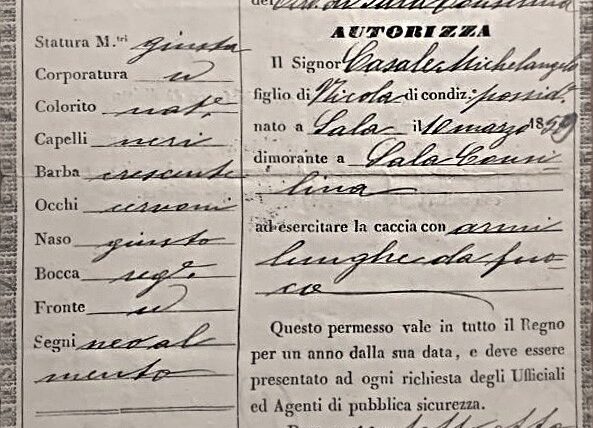 Statura M.tri giusta
Corporatura id
Colorito nat.e
Capelli neri
Barba crescente
Occhi cervoni
Naso giusto
Bocca reg.e
Fronte id
Segni neo al
mento
AUTORIZZA
Il Signor Casale Michelangelo
figlio di Nicola di condiz.: possid.
nato a Sala il 10 marzo 1859
dimorante a Sala Consi
lina
ad esercitare la caccia con armi
lunghe da fuo-
co
Questo permesso vale in tutto il Regno
per un anno dalla sua data, e deve essere
presentato ad ogni richiesta degli Ufficiali
ed Agenti di pubblica sicurezza.